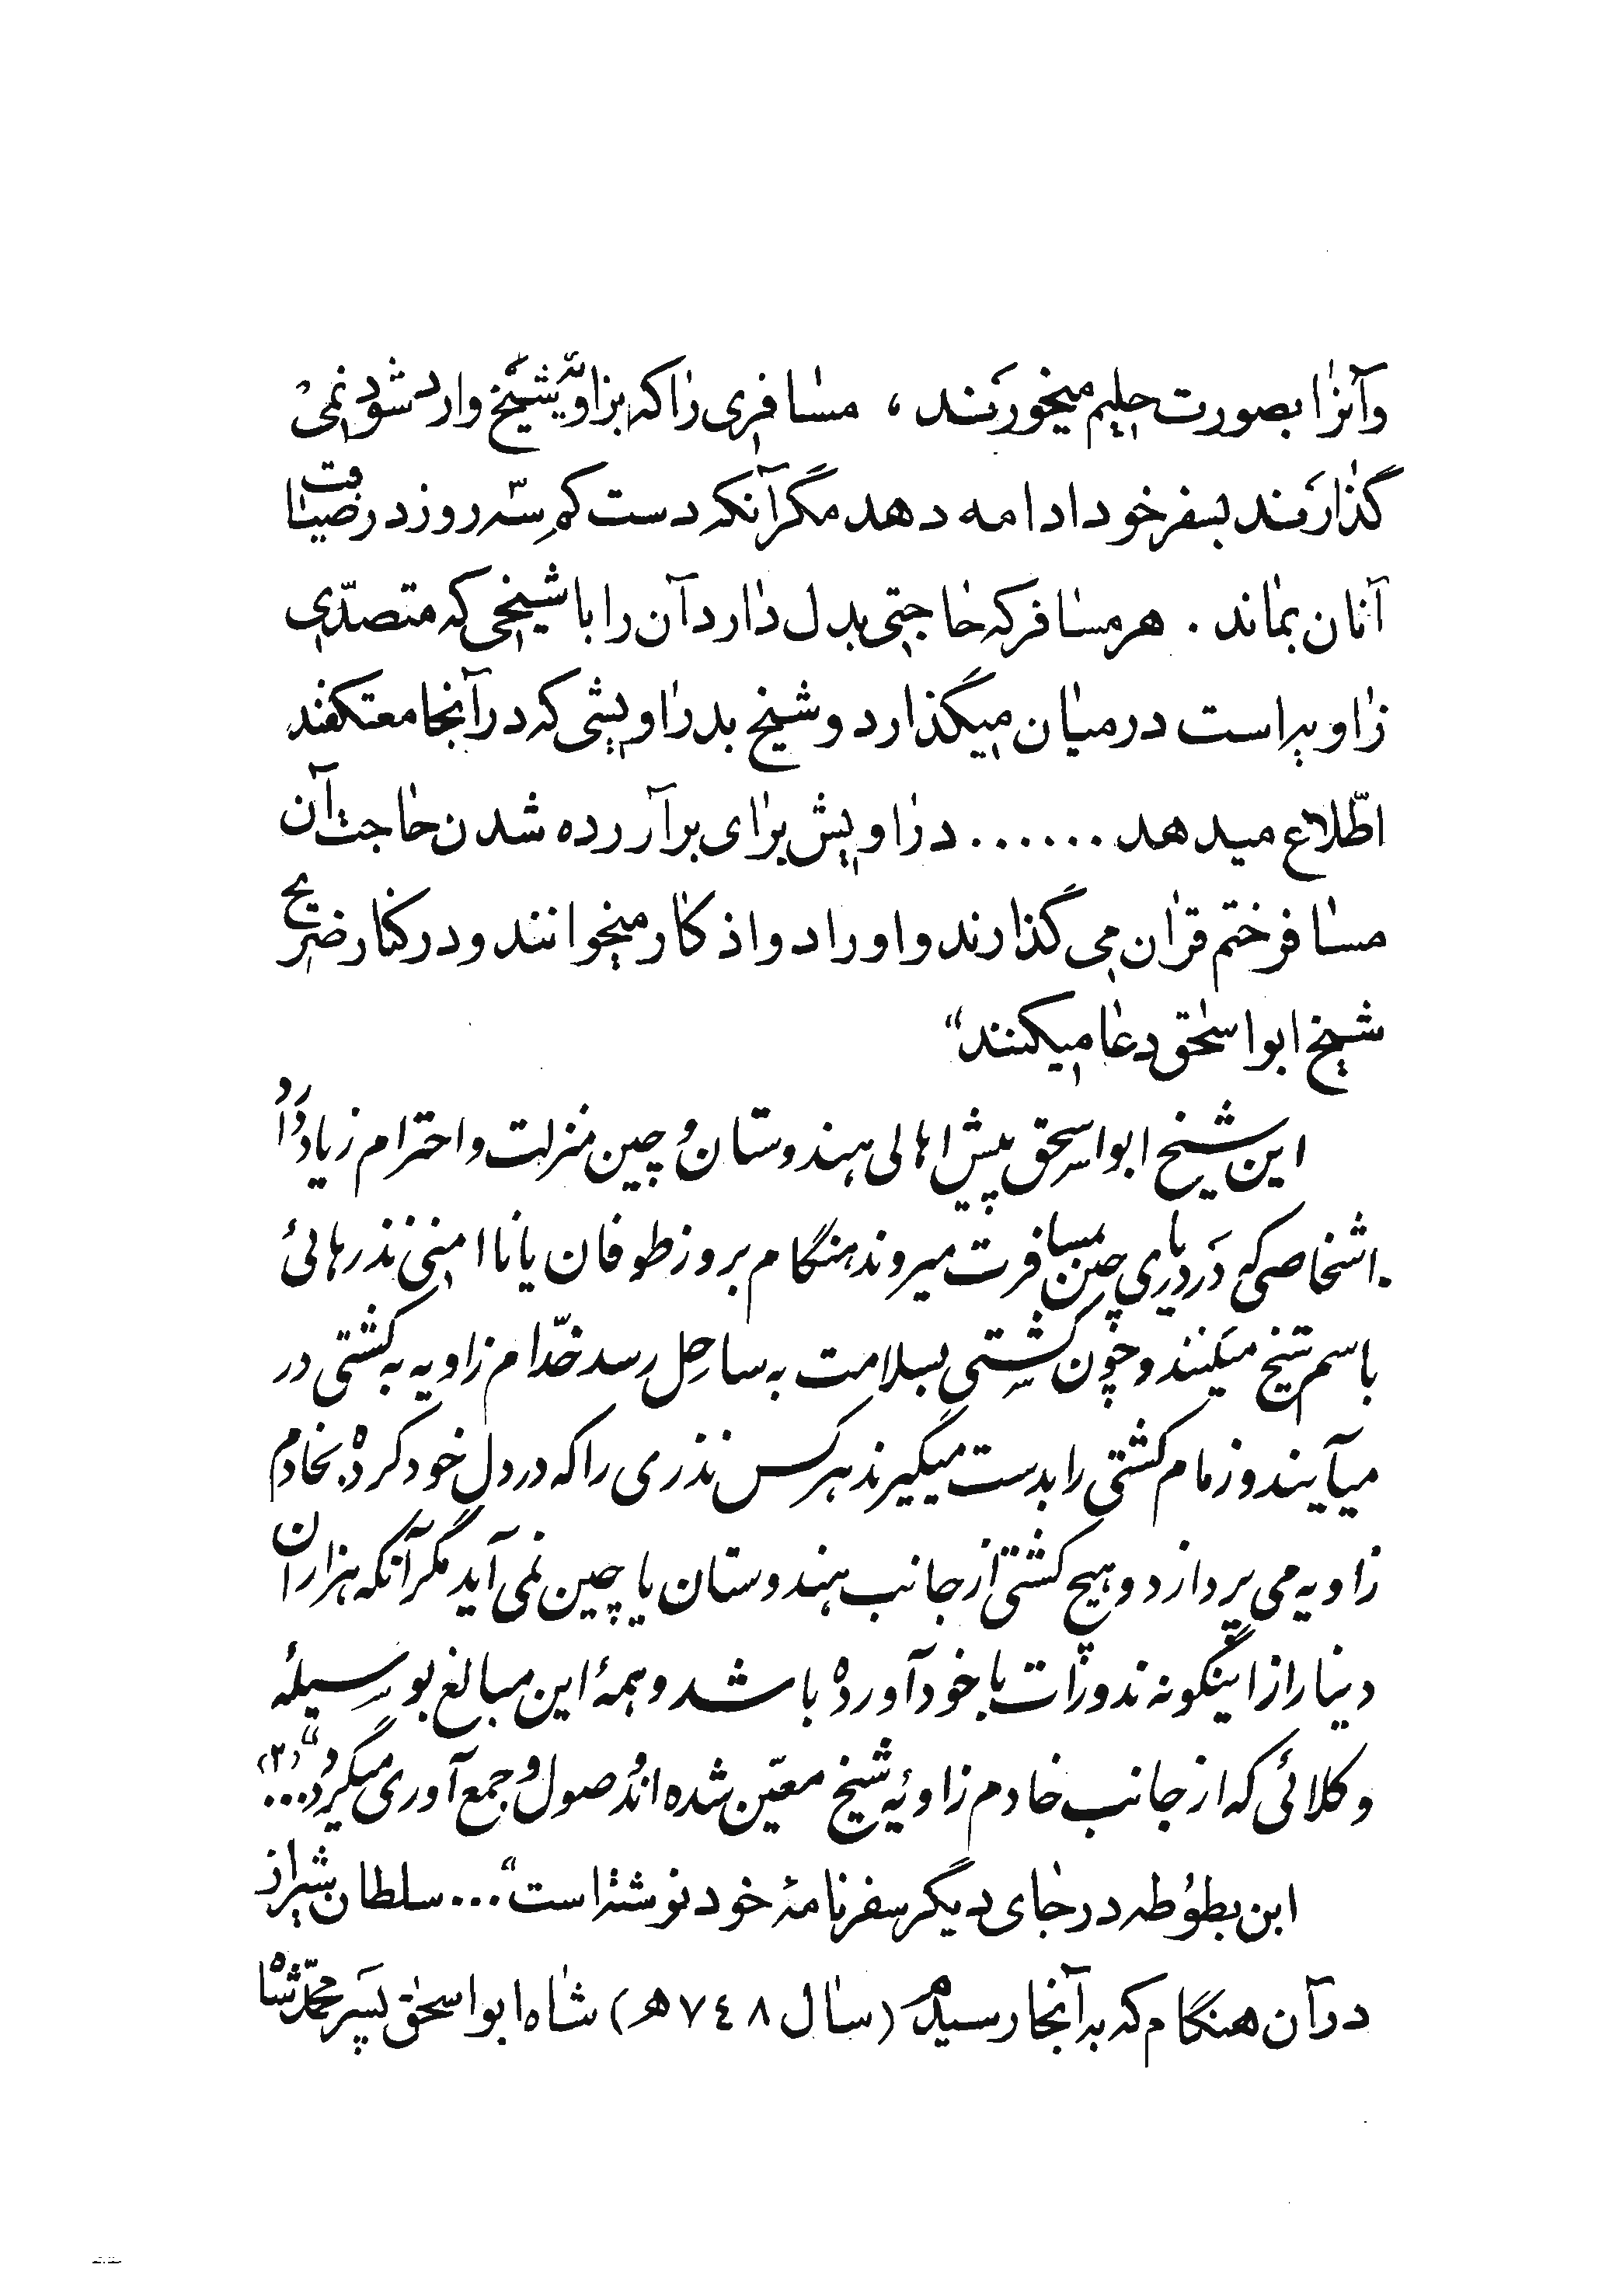 وآنرا بصورت حلیم میخورند ، مسافری راکه بزاویهٔ شیخ وارد شود نمی
گذارند بسفر خود ادامه دهد مگر آنکه دست کم سه روز در ضیافت
آنان بماند . هر مسافر که حاجتی بدل دارد آن را با شیخی که متصدّی
زاویه است در میان میگذارد و شیخ بدراویشی که در آنجا معتکفند
اطّلاع میدهد ...... دراویش برای برآورده شدن حاجت آن
مسافر ختم قرآن می گذارند و اوراد و اذکار میخوانند و در کنار ضریح
شیخ ابواسحق دعا میکنند“
این شیخ ابواسحق پیش اهالی هندوستان و چین منزلت و احترام زیاد دارد
. اشخاصی که در دریای چین مسافرت میروند هنگام بروز طوفان یا ناامنی نذرهائی
باسم شیخ میکنند و چون کشتی بسلامت به ساحل رسد خدّام زاویه به کشتی در
میآیند و زمام کشتی را بدست میگیرند هرکس نذری را که در دل خود کرده بخادم
زاویه می پردازد و هیچ کشتی از جانب هندوستان یا چین نمی آید مگر آنکه هزاران
دینار از اینگونه نذورات با خود آورده باشد و همهٔ این مبالغ بوسیلهٔ
وکلائی که از جانب خادم زاویهٔ شیخ معیّن شده اند وصول و جمع آوری میگردد...“ (۲)
ابن بطوطه در جای دیگر سفرنامهٔ خود نوشته است “... سلطان شیراز
در آن هنگام که به آنجا رسیدم (سال ٧٤٨ هـ) شاه ابواسحق پسر محمّد شاه